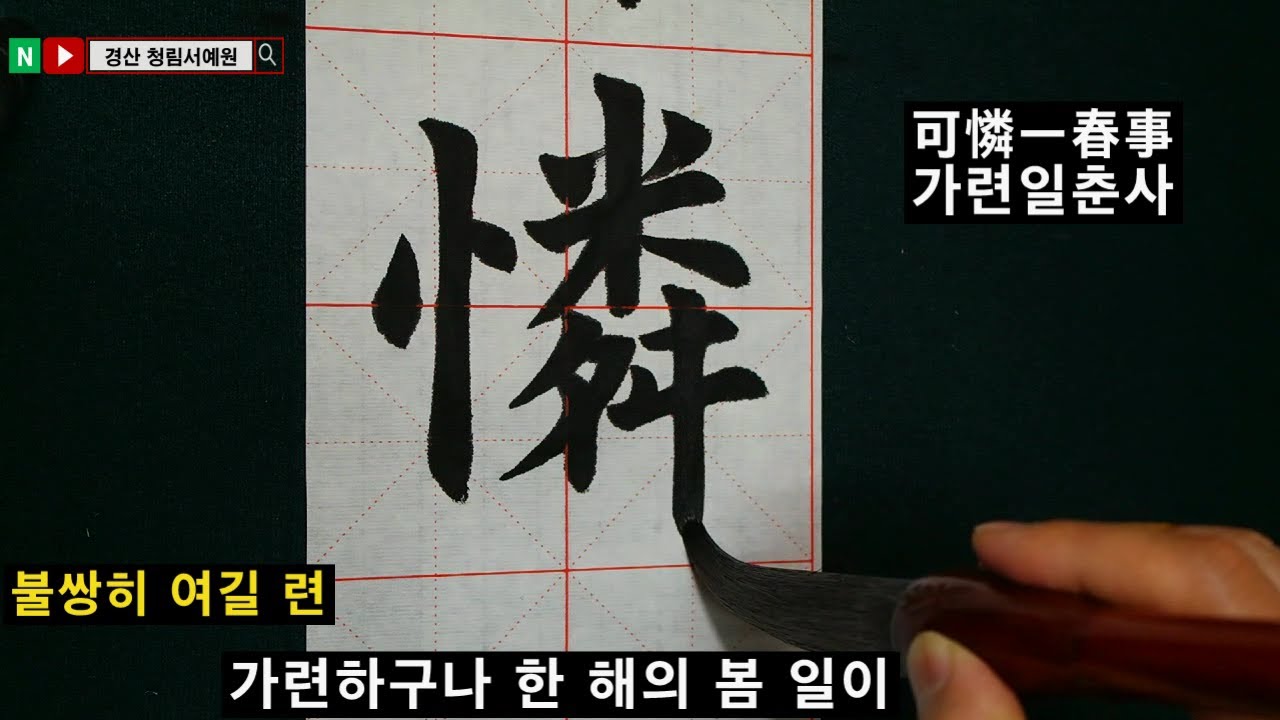 N 경산 청림서예원
可憐一春事
가련일춘사
憐
불쌍히 여길 련
가련하구나 한 해의 봄 일이